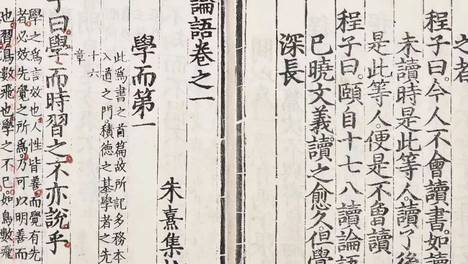 之者
程子曰今人不會讀書如讀
未讀時是此等人讀了後
是此等人便是不曾讀
程子曰頤自十七八讀論語
已曉文義讀之愈久但覺
深長
論語卷之一
朱熹集
學而第一
此為書之首篇故所記多務本
入道之門積德之基學者之先
十六
章
子曰學而時習之不亦說乎
學之為言效也人性皆善而覺有先
者必效先覺之所為乃可以明善而
也習鳥數飛也學之不已如鳥數飛